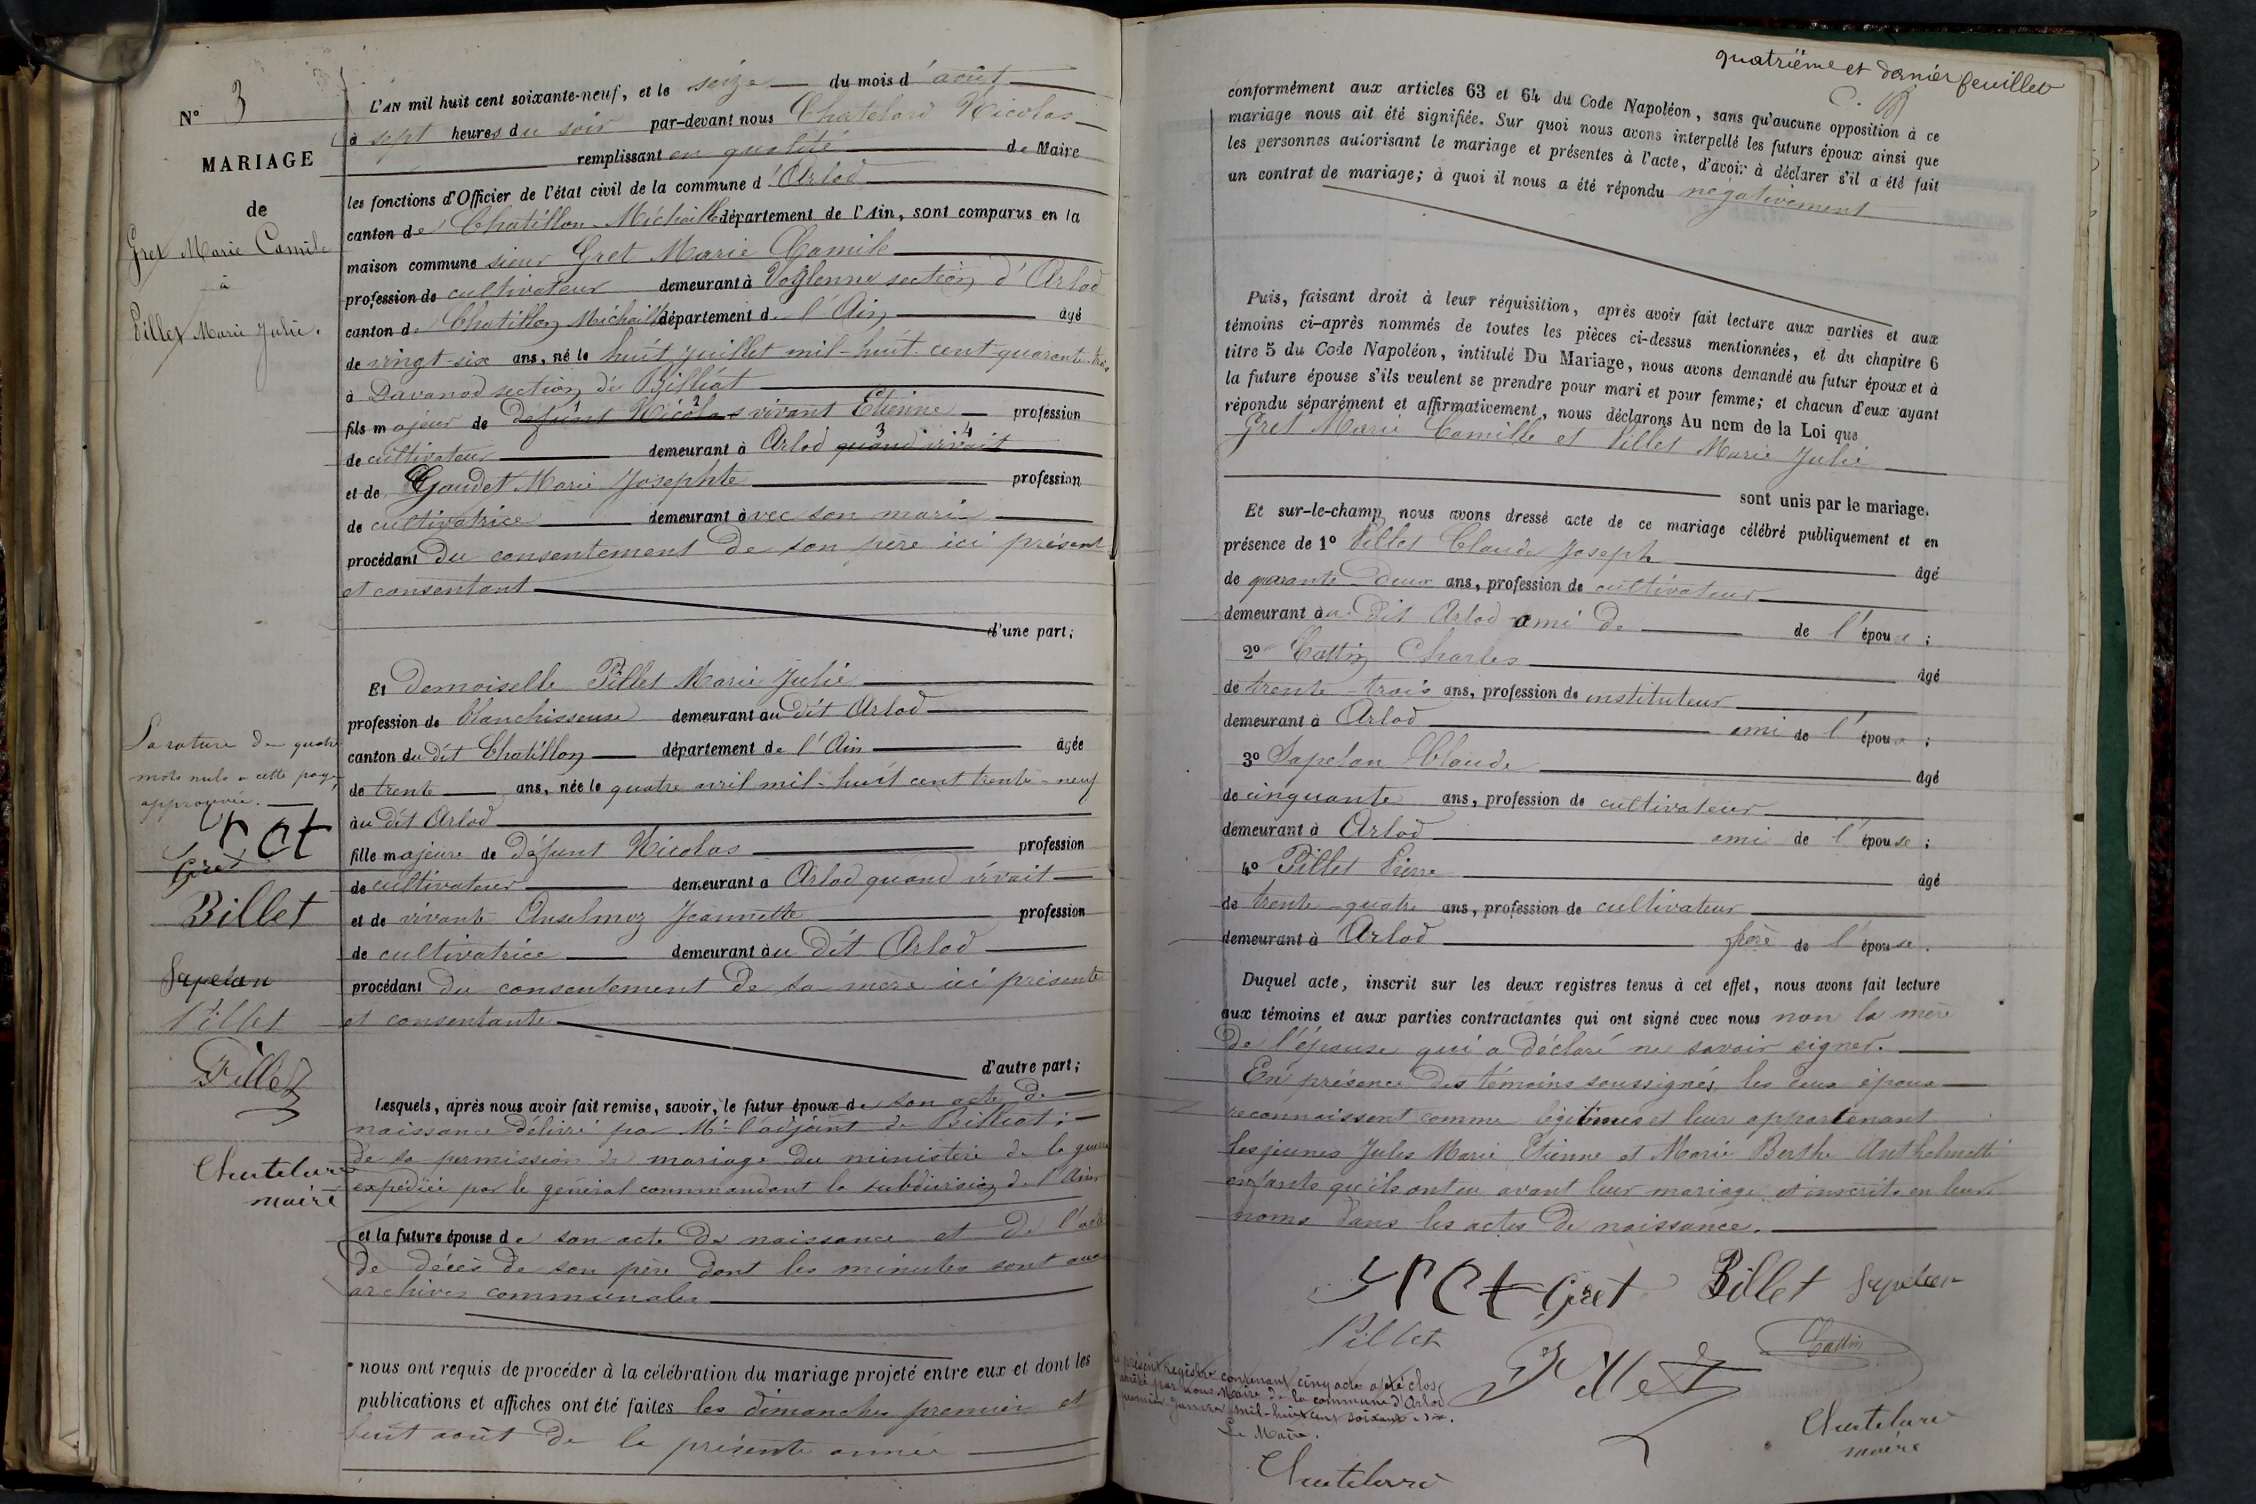 N° 3
MARIAGE
de
Gret Marie Camile
à
Pillet Marie Julie.
La rature de quatre
mots nuls à cette page
approuvée.
Gret
Billet
Sapelan
Pillet
Pillet
Chatelard
maire
L'AN mil huit cent soixante-neuf, et le seize du mois d'août
à sept heures du soir par-devant nous Chatelard Nicolas
remplissant en qualité de Maire
les fonctions d'Officier de l'état civil de la commune d'Arlod
canton de Chatillon-Michaille département de l'Ain, sont comparus en la
maison commune sieur Gret Marie Camile
profession de cultivateur demeurant à Voglenne section d'Arlod
canton de Chatillon Michaille département de l'Ain âgé
de vingt-six ans, né le huit juillet mil-huit-cent-quarante-trois
à Davanod section de Billiat
fils majeur de defunt Nicolas vivant Etienne profession
de cultivateur demeurant à Arlod quand vivait
et de Gaudet Marie Josephte profession
de cultivatrice demeurant avec son mari
procédant du consentement de son père ici présent
et consentant
d'une part;
Et demoiselle Pillet Marie Julie
profession de blanchisseuse demeurant au dit Arlod
canton du dit Chatillon département de l'Ain âgée
de trente ans, née le quatre avril mil-huit cent trente-neuf
au dit Arlod
fille majeure de défunt Nicolas profession
de cultivateur demeurant à Arlod quand vivait
et de vivante Anselmoz Jeannette profession
de cultivatrice demeurant au dit Arlod
procédant du consentement de sa mère ici présente
et consentante
d'autre part;
Lesquels, après nous avoir fait remise, savoir, le futur époux de son acte de
naissance délivré par Mr l'adjoint de Billiat;
de sa permission de mariage du ministère de la guerre
expédiée par le général commandant la subdivision de l'Ain
et la future épouse de son acte de naissance et de l'acte
de décès de son père dont les minutes sont aux
archives communales
nous ont requis de procéder à la célébration du mariage projeté entre eux et dont les
publications et affiches ont été faites les dimanches premier et
huit août de la présente année
quatrième et dernier feuillet
conformément aux articles 63 et 64 du Code Napoléon, sans qu'aucune opposition à ce
mariage nous ait été signifiée. Sur quoi nous avons interpellé les futurs époux ainsi que
les personnes autorisant le mariage et présentes à l'acte, d'avoir à déclarer s'il a été fait
un contrat de mariage; à quoi il nous a été répondu négativement
Puis, faisant droit à leur réquisition, après avoir fait lecture aux parties et aux
témoins ci-après nommés de toutes les pièces ci-dessus mentionnées, et du chapitre 6
titre 5 du Code Napoléon, intitulé Du Mariage, nous avons demandé au futur époux et à
la future épouse s'ils veulent se prendre pour mari et pour femme; et chacun d'eux ayant
répondu séparément et affirmativement, nous déclarons Au nom de la Loi que
Gret Marie Camille et Pillet Marie Julie
sont unis par le mariage.
Et sur-le-champ nous avons dressé acte de ce mariage célébré publiquement et en
présence de 1° Pillet Claude Joseph âgé
de quarante deux ans, profession de cultivateur
demeurant au dit Arlod ami de de l'épouse;
2° Cattin Charles âgé
de trente-trois ans, profession de instituteur
demeurant à Arlod ami de l'époux;
3° Sapelan Claude âgé
de cinquante ans, profession de cultivateur
demeurant à Arlod ami de l'épouse;
4° Pillet Pierre âgé
de trente-quatre ans, profession de cultivateur
demeurant à Arlod frère de l'épouse.
Duquel acte, inscrit sur les deux registres tenus à cet effet, nous avons fait lecture
aux témoins et aux parties contractantes qui ont signé avec nous non la mère
de l'épouse qui a déclaré ne savoir signer.
En présence des témoins soussignés les deux époux
reconnaissent comme légitimes et leur appartenant
les jeunes Jules Marie Etienne et Marie Berthe Anthelmette
enfants qu'ils ont eu avant leur mariage et inscrits en leurs
noms dans les actes de naissance.
Gret Billet Sapelan
Pillet Pillet Cattin
Le présent registre contenant cinq actes a été clos
arrêté par nous Maire de la commune d'Arlod
premier janvier mil-huit cent soixante-dix.
Le Maire.
Chatelard
Chatelard
maire